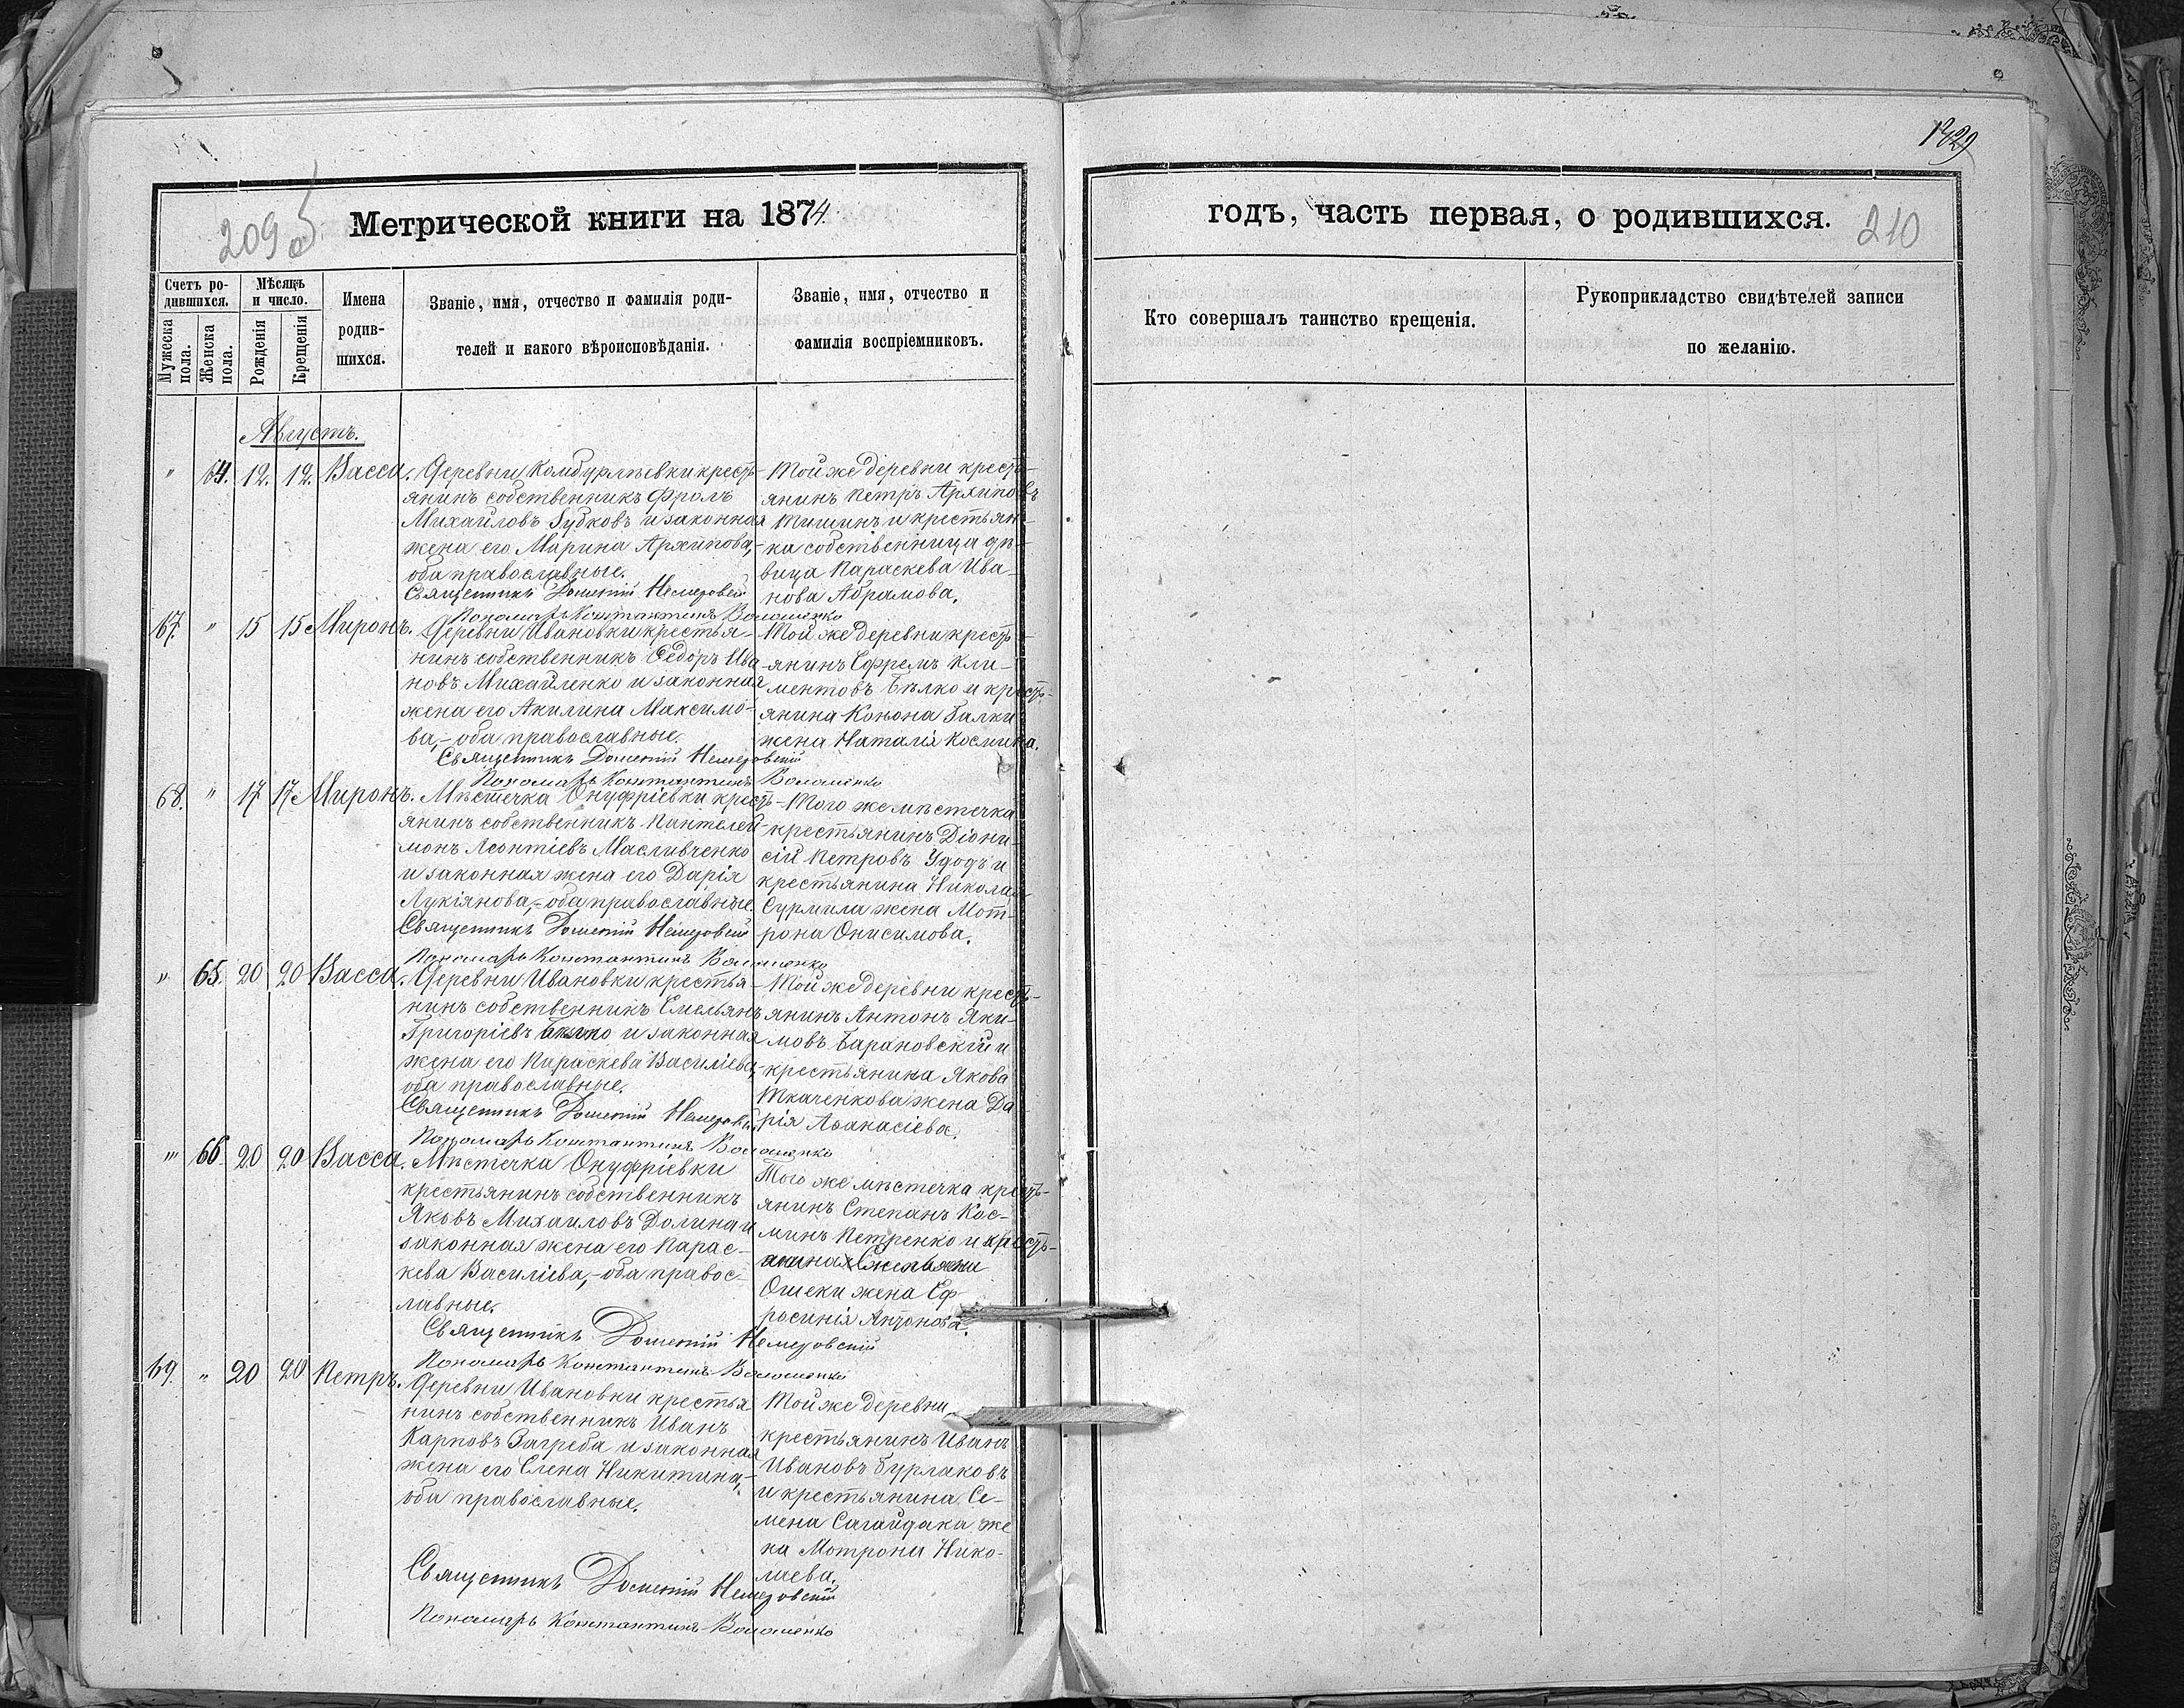 1329
209 об
Метрической книги на 1874
годъ, часть первая, о родившихся.
210
Счетъ родившихся.
Мужеска пола.
Женска пола.
Мѣсяцъ и число.
Рожденія
Крещенія
Имена родив-
шихся.
Званіе, имя, отчество и фамилія роди-
телей и какого вѣроисповѣданія.
Званіе, имя, отчество и
фамилія воспріемниковъ.
Кто совершалъ таинство крещенія.
Рукоприкладство свидѣтелей записи
по желанію.
Августъ.
" 64. 12. 12. Васса.
Деревни Камбурлѣевки кресть-
янинъ собственникъ Фролъ
Михайловъ Зубковъ и законная
жена его Марина Архипова,-
оба православные.
Священникъ Дометій
Пономарь Константинъ Волошенко
Той же деревни кресть-
янинъ Петръ Архиповъ
Тишинъ и крестьян-
ка собственница дѣ-
вица Параскева Ива-
нова Абрамова.
67. " 15 15 Миронъ.
Деревни Ивановки крестья-
нинъ собственникъ Ѳедоръ Ива-
новъ Михайленко и законная
жена его Акилина Максимо-
ва,- оба православные.
Священникъ Дометій
Пономарь Константинъ Волошенко
Той же деревни кресть-
янинъ Ефремъ Кли-
ментовъ Бѣлко и кресть-
янина Конона Балки
жена Наталія Космина.
68. " 17 17 Миронъ.
Мѣстечка Онуфріевки кресть-
янинъ собственникъ Пантелей-
монъ Леонтіевъ Масливченко
и законная жена его Дарія
Лукіянова,- оба православные.
Священникъ Дометій
Пономарь Константинъ Волошенко
Того же мѣстечка
крестьянинъ Діони-
сій Петровъ Удодъ и
крестьянина Николая
Сурмила жена Мот-
рона Онисимова.
" 65. 20 20 Васса.
Деревни Ивановки крестья-
нинъ собственникъ Емельянъ
Григоріевъ и законная
жена его Параскева Василіева,-
оба православные.
Священникъ Дометій
Пономарь Константинъ Волошенко
Той же деревни кресть-
янинъ Антонъ Яки-
мовъ Барановскій и
крестьянина Якова
Ткаченкова жена Да-
рія Аѳанасіева.
" 66 20 20 Васса.
Мѣстечка Онуфріевки
крестьянинъ собственникъ
Яковъ Михаиловъ Долина и
законная жена его Парас-
кева Василіева,- оба правос-
лавные.
Священникъ Дометій
Пономарь Константинъ Волошенко
Того же мѣстечка кресть-
янинъ Степанъ Кос-
минъ Петренко и кресть-
янина
Ошеки жена Еф-
росинія Антонова.
69. " 20 20 Петръ.
Деревни Ивановки крестья-
нинъ собственникъ Иванъ
Карповъ Загреба и законная
жена его Елена Никитина,-
оба православные.
Священникъ Дометій
Пономарь Константинъ Волошенко
Той же деревни
крестьянинъ Иванъ
Ивановъ Бурлаковъ
и крестьянина Се-
мена Сагайдака же-
на Мотрона Нико-
лаева.